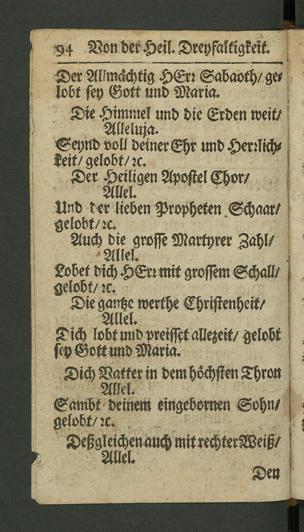 94 Von der Heil. Dreyfaltigkeit.
Der Allmächtig HErr Sabaoth/ ge-
lobt sey Gott und Maria.
Die Himmel und die Erden weit/
Alleluja.
Seynd voll deiner Ehr und Herrlich-
keit/ gelobt/ ꝛc.
Der Heiligen Apostel Chor/
Allel.
Und der lieben Propheten Schaar/
gelobt/ ꝛc.
Auch die grosse Martyrer Zahl/
Allel.
Lobet dich HErr mit grossem Schall/
gelobt/ ꝛc.
Die gantze werthe Christenheit/
Allel.
Dich lobt und preisset allezeit/ gelobt
sey Gott und Maria.
Dich Vatter in dem höchsten Thron
Allel.
Sambt deinem eingebornen Sohn/
gelobt/ ꝛc.
Deßgleichen auch mit rechter Weiß/
Allel.
Den